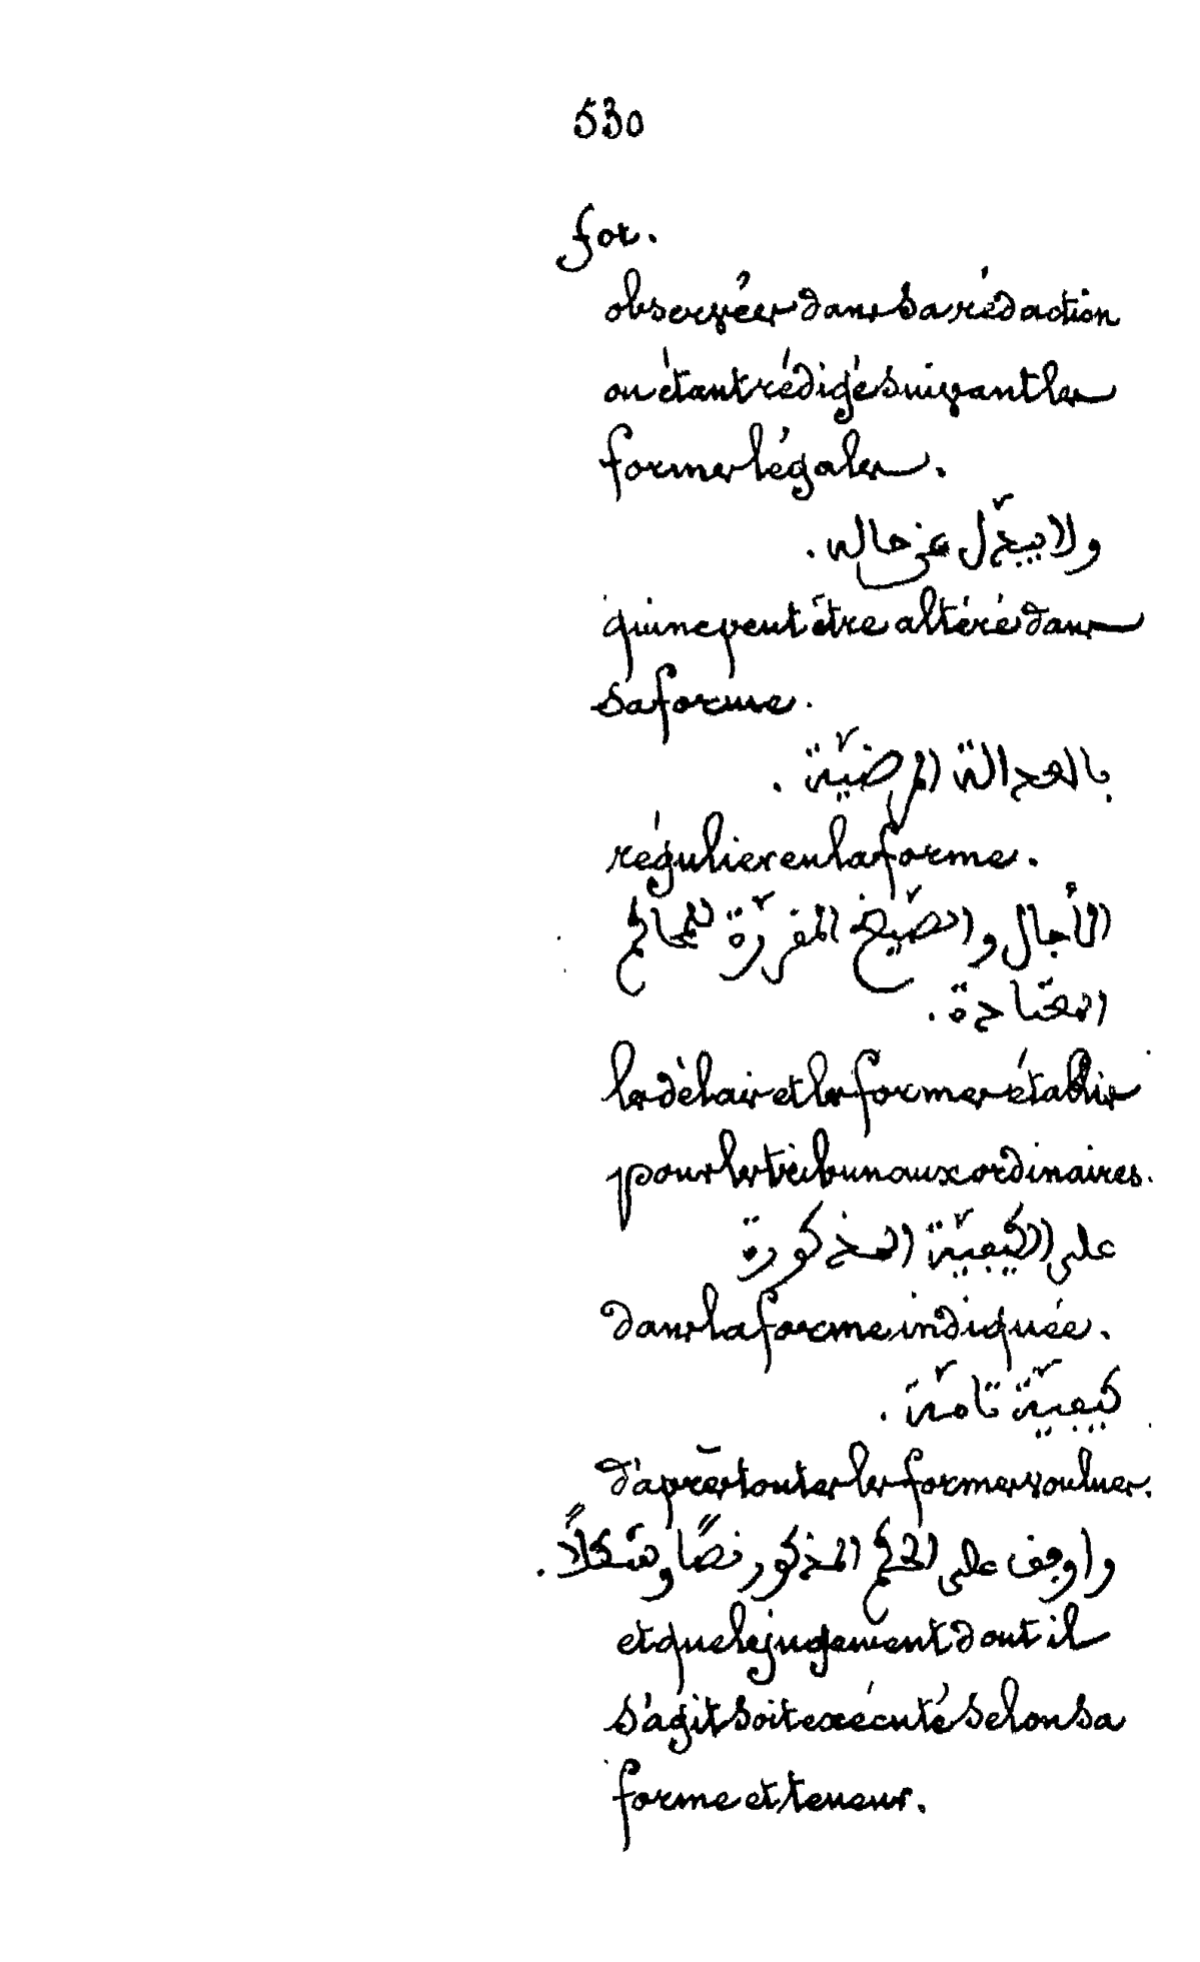 530
for.
observées dans sa rédaction
ou étant rédigé suivant les
formes légales.
ولا يبدّل عن حاله.
qui ne peut être altéré dans
sa forme.
بالعدالة المرضيّة.
régulier en la forme.
الأجال والصّيغ المقرّرة للمحاكم
المعتادة.
les délais et les formes établis
pour les tribunaux ordinaires.
على الكيفيّة المذكورة
dans la forme indiquée.
كيفيّة تامّة.
d'après toutes les formes voulues.
واوقف على الحكم المذكور نصًّا وشكلاً.
et que le jugement dont il
s'agit soit exécuté selon sa
forme et teneur.